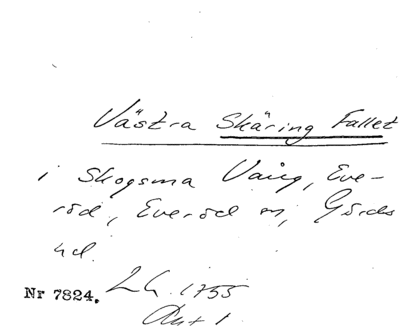 Västra Skäring Fallet
i Skogsma Vång, Eve-
röd, Everöd sn, Gärds
hd.
Nr 7824. LG 1755
Akt 1